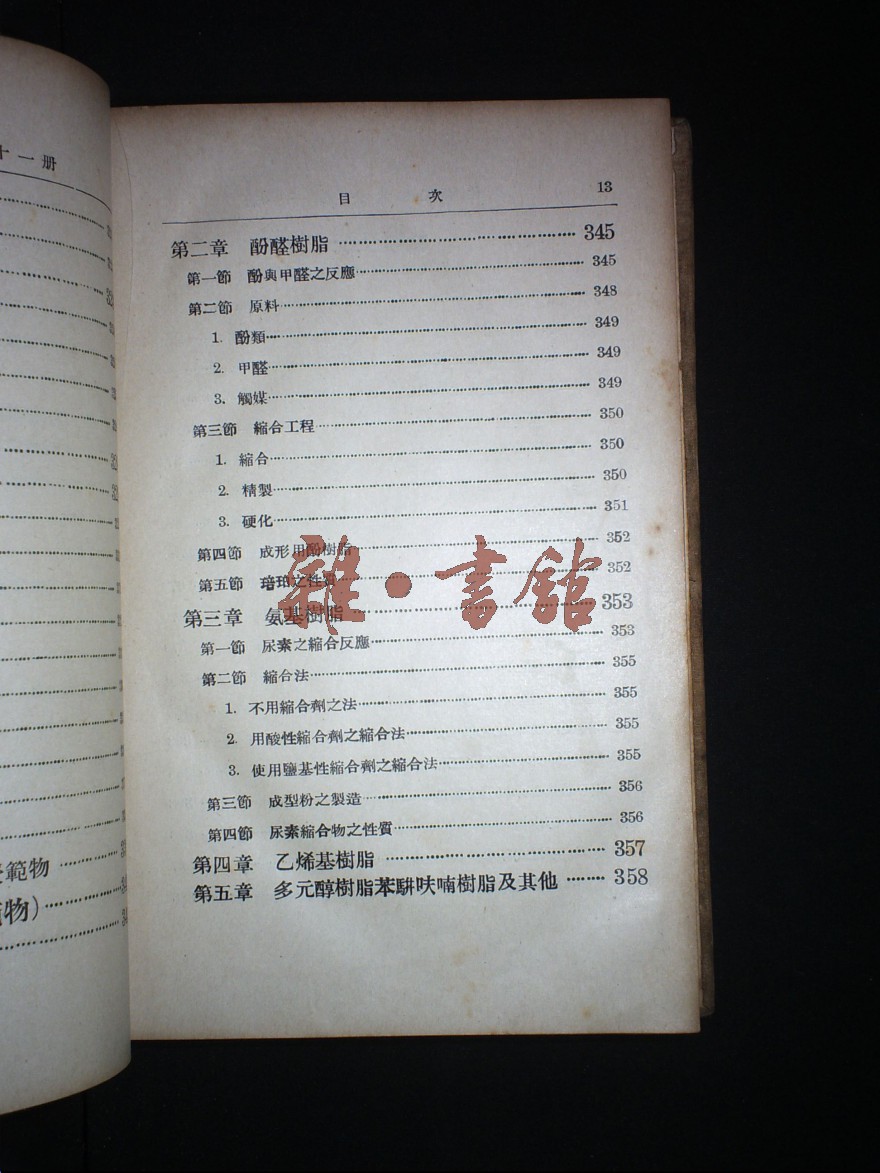 十一册
範物
物)
目 次 13
第二章 酚醛樹脂 345
第一節 酚與甲醛之反應 345
第二節 原料 348
1. 酚類 349
2. 甲醛 349
3. 觸媒 349
第三節 縮合工程 350
1. 縮合 350
2. 精製 350
3. 硬化 351
第四節 成形用酚樹脂 352
第五節 之性質 352
第三章 氨基樹脂 353
第一節 尿素之縮合反應 353
第二節 縮合法 355
1. 不用縮合劑之法 355
2. 用酸性縮合劑之縮合法 355
3. 使用鹽基性縮合劑之縮合法 355
第三節 成型粉之製造 356
第四節 尿素縮合物之性質 356
第四章 乙烯基樹脂 357
第五章 多元醇樹脂苯駢呋喃樹脂及其他 358
雜·書館